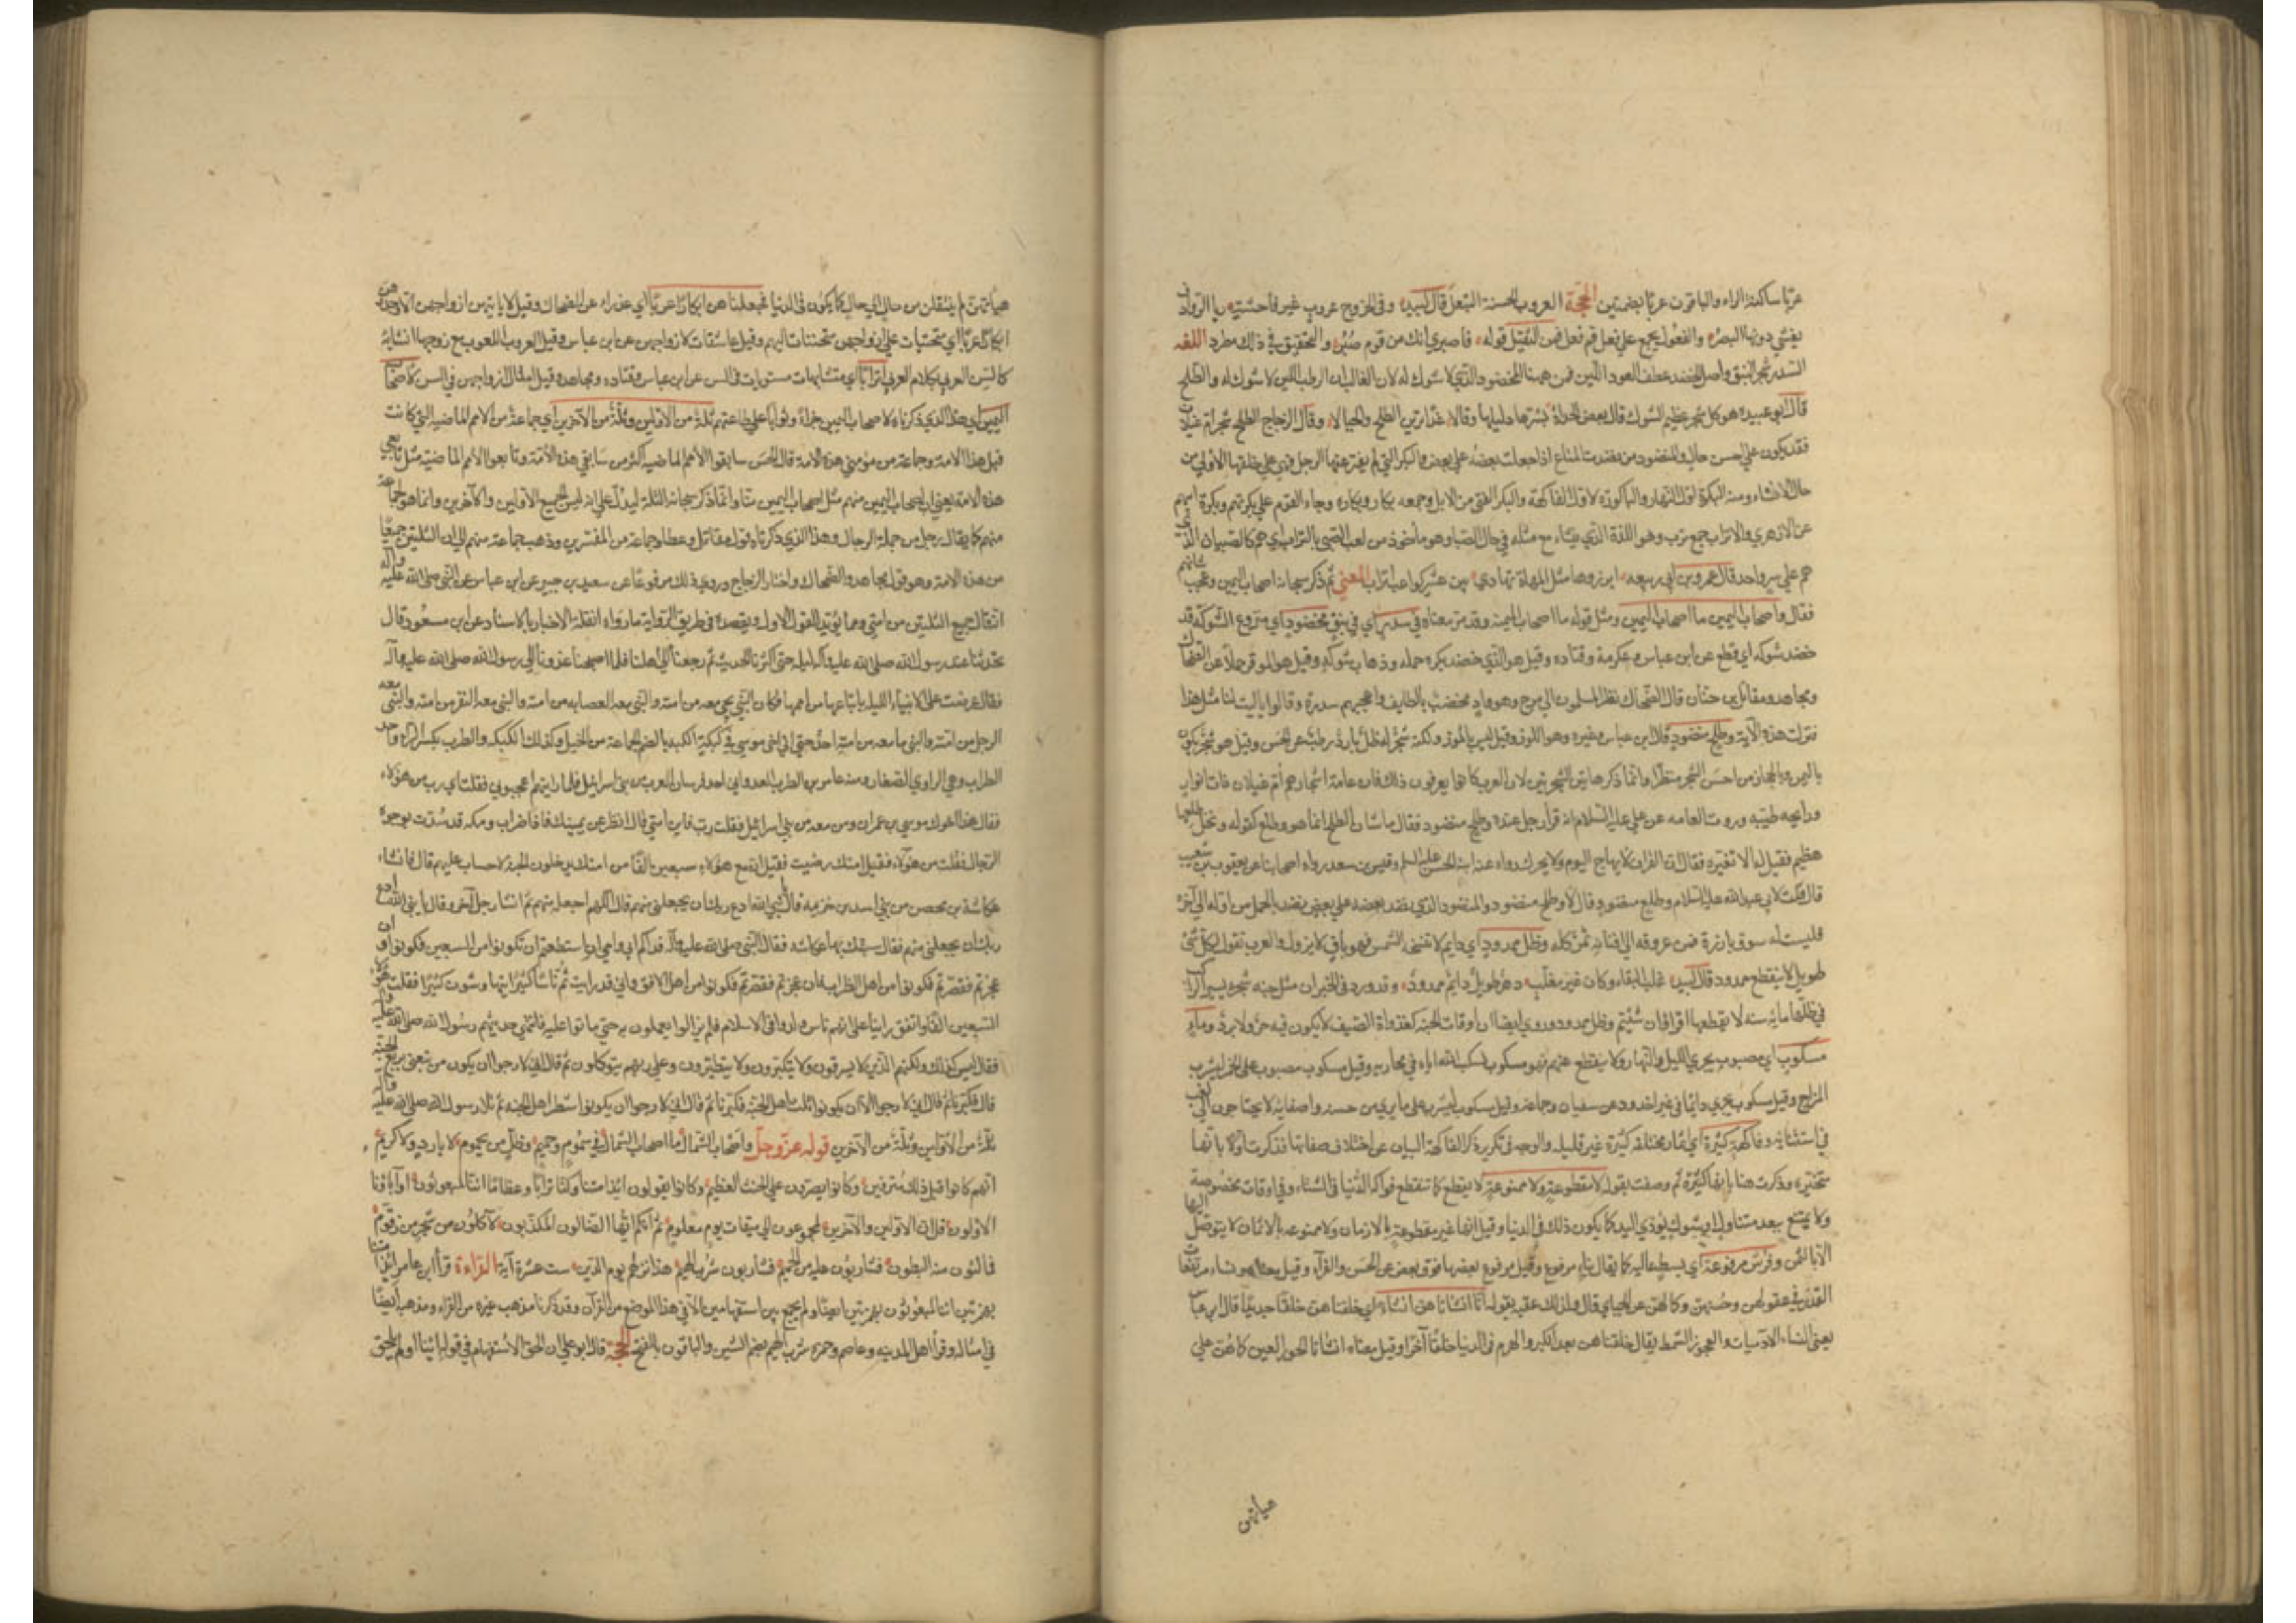 عربا ساكنة الراء والباقون عربا بضمتين الحجة العروب الحسنة التبعل قال لبيد وفي الحدوج عروب غير فاحشة ريا الروادف
يعشي دونها البصر والفعول يجمع على فعل وفعل فمن التثقيل قوله فاصبري انك من قوم صبر والتخفيف في ذلك مطرد اللغه
السدر شجر النبق واصل الخضد عطف العود اللين فمن ههنا المخضود الذي لا شوك له لان الغالب ان الرطب اللين لا شوك له والطلح
قال ابو عبيده هو كل شجر عظيم الشوك قال بعض الحداة بشرها دليلها وقالا غدا ترين الطلح والجبالا وقال الزجاج الطلح شجر ام غيلان
فقد يكون على احسن حال والمنضود من نضدت المتاع اذا جعلت بعضه على بعض والبكر التي لم يفترعها الرجل فهي على خلقتها الاولى من
حال الانشاء ومنه البكرة لاول النهار والباكورة لاول الفاكهة والبكر الفتى من الابل وجمعه بكار وبكاره وجاء القوم على بكرتهم وبكرة ابيهم
عن الازهري والاتراب جمع ترب وهو اللدة الذي ينشاء مع مثله في حال الصبا وهو ماخوذ من لعب الصبي بالتراب اي هم كالصبيان الذين
هم على سن واحد قال عمرو بن ابي ربيعه ابرزوها مثل المهاة تهادى بين عشر كواعب اتراب المعنى ثم ذكر سبحانه اصحاب اليمين وعجب شانهم
فقال واصحاب اليمين ما اصحاب اليمين ومثل قوله ما اصحاب الميمنه وقد مر معناه في سدر اي في نبق مخضود اي منزوع الشوكة قد
خضد شوكه اي قطع عن ابن عباس وعكرمة وقتاده وقيل هو الذي خضد بكثره حمله وذهاب شوكه وقيل هو الموقر حملا عن الضحاك
ومجاهد ومقاتل بن حيان قال الضحاك نظر المسلمون الى وج وهو واد مخضب بالطايف واعجبهم سدره وقالوا يا ليت لنا مثل هذا
فنزلت هذه الآية وطلح منضود قال ابن عباس وغيره وهو الموز وقيل ليس بالموز ولكنه شجر له ظل بارد رطب عن الحسن وقيل هو شجر يكون
باليمن وبالحجاز من احسن الشجر منظرا وانما ذكر هاتين الشجرتين لان العرب كانوا يعرفون ذلك فان عامة اشجارهم ام غيلان ذات انوار
ورايحه طيبه وروت العامه عن علي عليه السلام انه قرأ رجل عنده وطلح منضود فقال ما شان الطلح انما هو وطلع كقوله ونخل طلعها
هضيم فقيل له الا تغيره فقال ان القران لا يهاج اليوم ولا يحرك رواه عنه ابنه الحسن عليه السلم وقيس بن سعد رواه اصحابنا عن يعقوب بن شعيب
قال قلت لابي عبد الله عليه السلام وطلح منضود قال لا وطلع منضود والمنضود الذي نضد بعضه على بعض نضد بالحمل من اوله الى آخره
فليست له سوق بارزة فمن عروقه الى افنانه ثمر كله وظل ممدود اي دايم لا تنسخه الشمس فهو باق لا يزول والعرب تقول لكل شئ
طويل لا ينقطع ممدود قال لبيد غلب البقاء وكان غير مغلب دهر طويل دائم ممدود وقد ورد في الخبر ان في الجنه شجره يسير الراكب
في ظلها مايه سنه لا يقطعها اقرأوا ان شئتم وظل ممدود وروي ايضا ان اوقات الجنه كغدوات الصيف لا يكون فيه حر ولا برد وماء
مسكوب اي مصبوب يجري الليل والنهار ولا ينقطع عنهم فهو مسكوب يسكب الله اياه في مجاريه وقيل مسكوب مصبوب على الخمر ليشرب
المزاج وقيل مسكوب يجري دائما في غير اخدود عن سفيان وجماعة وقيل مسكوب ليشرب على ما يرى من حسنه وصفايه لا يحتاجون الى تعب
في استقائه وفاكهة كثيرة اي ثمار مختلفه كثيرة غير قليله والوجه في تكرير ذكر الفاكهة البيان عن اختلاف صفاتها فذكرت اولا بانها
متخيره وذكرت هنا بانها كثيرة ثم وصفت بقوله لا مقطوعة ولا ممنوعة اي لا ينقطع كما تنقطع فواكه الدنيا في الشتاء وفي اوقات مخصوصة
ولا يمتنع ببعد متناول او شوك يؤذي اليد كما يكون ذلك في الدنيا وقيل انها غير مقطوعة بالازمان ولا ممنوعه بالاثمان لا يتوصل اليها
الا بالثمن وفرش مرفوعة اي بسط عاليه كما يقال بناء مرفوع وقيل مرفوع بعضها فوق بعض عن الحسن والفراء وقيل معناه ونساء مرتفعات
القدر في عقولهن وحسنهن وكمالهن عن الجبائي قال ولذلك عقبه بقوله انا انشاناهن انشاء اي خلقناهن خلقا جديدا قال ابن عباس
يعني النساء الادميات والعجوز الشمط يقال خلقناهن بعد الكبر والهرم في الدنيا خلقا آخر وقيل معناه انشانا الحور العين كما هن على
هياتهن
هياتهن لم ينتقلن من حال الى حال كما يكون في الدنيا فجعلناهن ابكارا عربا اي عذراء عن الضحاك وقيل لا ياتيهن ازواجهن الا وجدوهن
ابكارا عربا اي متحببات على ازواجهن متحننات اليهم وقيل عاشقات لازواجهن عن ابن عباس وقيل العروب اللعوب مع زوجها انسا به
كانس العرب بكلام العربي اترابا اي متشابهات مستويات في السن عن ابن عباس وقتاده ومجاهد وقيل امثال ازواجهن في السن لاصحاب
اليمين اي هذا الذي ذكرناه لاصحاب اليمين جزاء وثوابا على طاعتهم ثلة من الاولين وثلة من الآخرين اي جماعة من الامم الماضيه التي كانت
قبل هذا الامة وجماعة من مؤمني هذه الامة قال الحسن سابقوا الامم الماضيه اكثر من سابقي هذه الامة وتابعوا الامم الماضية مثل تابعي
هذه الامة يعني ان اصحاب اليمين منهم مثل اصحاب اليمين منا وانما ذكر سبحانه الثلة ليدل على انه ليس لجميع الاولين والآخرين وانما هو لجماعة
منهم كما يقال رجل من جملة الرجال وهذا الذي ذكرناه قول مقاتل وعطا وجماعة من المفسرين وذهب جماعة منهم الى ان الثلتين جميعا
من هذه الامة وهو قول مجاهد والضحاك واختار الزجاج وروي ذلك مرفوعا عن سعيد بن جبير عن ابن عباس عن النبي صلى الله عليه وآله
انه قال جميع الثلتين من امتي ومما يؤيد القول الاول ويعضده من طريق الرواية ما رواه انقلة الاخبار بالاسناد عن ابن مسعود قال
تحدثنا عند رسول الله صلى الله عليه وآله ليلة حتى اكثرنا الحديث ثم رجعنا الى اهلنا فلما اصبحنا غدونا الى رسول الله صلى الله عليه وآله
فقال عرضت علي الانبياء الليلة باتباعها من اممها فكان النبي يجي معه من امته والنبي معه العصابه من امته والنبي معه النفر من امته والنبي معه
الرجل من امته والنبي ما معه من امته احد حتى اتى اخي موسى في كبكبة الكبه بالضم الجماعة من الخيل وكذلك الكبكبه والظرب بكسر الراء واحد
الظراب وهي الروابي الصغار ومنه عامر بن الظرب العدواني احد فرسان العرب من بني اسرائيل فلما رايتهم اعجبوني فقلت اي رب من هؤلاء
فقال هذا اخوك موسى بن عمران ومن معه من بني اسرائيل فقلت رب فاين امتي قال انظر عن يمينك فاذا ظراب ومكه قد سدت بوجوه
الرجال فقلت من هؤلاء فقيل امتك رضيت فقيل ان مع هؤلاء سبعين الفا من امتك يدخلون الجنة لا حساب عليهم قال فانشاء
عكاشة بن محصن من بني اسد بن خزيمه فقال يا نبي الله ادع ربك ان يجعلني منهم قال اللهم اجعله منهم ثم انشا رجل آخر وقال يا نبي الله ادع
ربك ان يجعلني منهم فقال سبقك بها عكاشه فقال النبي صلى الله عليه وآله فداكم ابي وامي ان استطعتم ان تكونوا من السبعين فكونوا وان
عجزتم فقصرتم فكونوا من اهل الظراب فان عجزتم فقصرتم فكونوا من اهل الافق واني قد رايت ثم ناسا كثيرا يتهاوشون كثيرا فقلت هؤلاء
السبعين الفا واتفق راينا على انهم ناس ولدوا في الاسلام فلم يزالوا يعملون به حتى ماتوا عليه فانتهى حديثهم رسول الله صلى الله عليه وآله
فقال ليس كذلك ولكنهم الذين لا يسرقون ولا يتكبرون ولا يتطيرون وعلى ربهم يتوكلون ثم قال اني لارجوا ان يكون من تبعني ربع الجنة
قال فكبرنا ثم قال اني لارجوا الا ان يكونوا ثلث اهل الجنة فكبرنا ثم قال اني لارجوا ان يكونوا شطر اهل الجنة ثم تلا رسول الله صلى الله عليه وآله
ثلة من الاولين وثلة من الآخرين قوله عز وجل واصحاب الشمال ما اصحاب الشمال في سموم وحميم وظل من يحموم لا بارد ولا كريم
انهم كانوا قبل ذلك مترفين وكانوا يصرون على الحنث العظيم وكانوا يقولون ائذا متنا وكنا ترابا وعظاما ائنا لمبعوثون اوآباؤنا
الاولون قل ان الاولين والآخرين لمجموعون الى ميقات يوم معلوم ثم انكم ايها الضالون المكذبون لآكلون من شجر من زقوم
فمالئون منه البطون فشاربون عليه من الحميم فشاربون شرب الهيم هذا نزلهم يوم الدين ست عشرة آية القراءة قرأ ابن عامر ائذا متنا
بهمزتين ائنا لمبعوثون بهمزتين ايضا ولم يجمع بين استفهامين الا في هذا الموضع من القرآن وقد ذكرنا مذهب غيره من القراء ومذهبه ايضا
في امثاله وقرأ اهل المدينه وعاصم وحمزه شرب الهيم بضم الشين والباقون بالفتح الحجه قال ابو علي ان الحق الاستفهام في قوله ائنا او لم يلحق